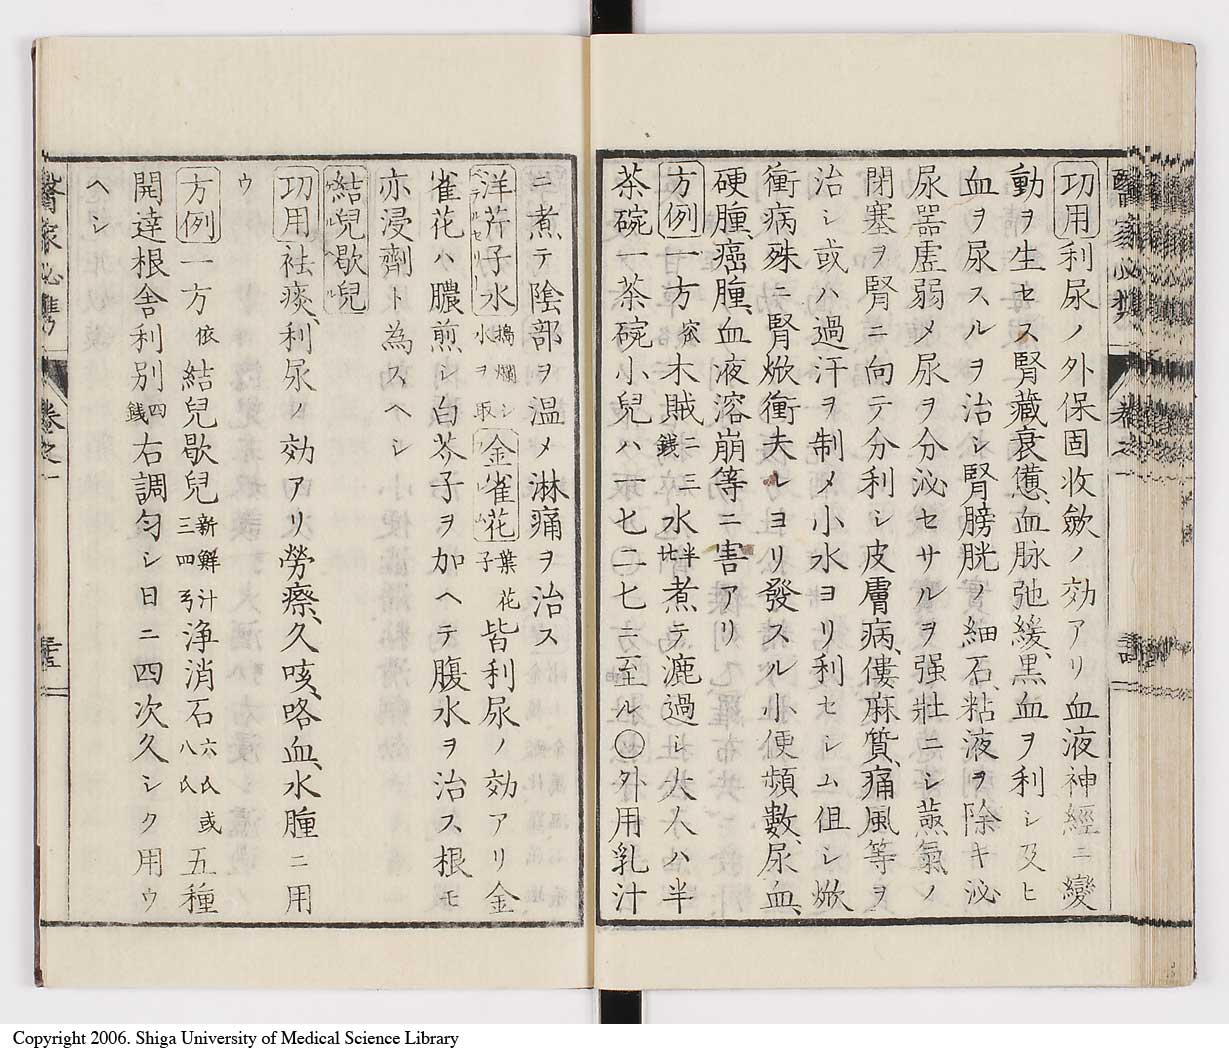 功用利尿ノ外保固收斂ノ効アリ血液神經ニ變
動ヲ生セス腎藏衰憊、血脉弛緩、黑血ヲ利シ及ヒ
血ヲ尿スルヲ治シ腎膀胱ノ細石、粘液ヲ除キ泌
尿器虚弱メ尿ヲ分泌セサルヲ强壯ニシ蒸氣ノ
閉塞ヲ腎ニ向テ分利シ皮膚病、僂麻質、痛風等ヲ
治シ或ハ過汗ヲ制メ小水ヨリ利セシム但シ焮
衝病殊ニ腎焮衝夫レヨリ發スル小便頻數、尿血、
硬腫、癌腫、血液溶崩等ニ害アリ
方例一方 木賊二三錢水半 煮テ漉過シ大人ハ半
茶碗一茶碗小兒ハ一七二七ニ至ル○外用乳汁
ニ煮テ陰部ヲ温メ淋痛ヲ治ス
洋芹子水搗爛シ水ヲ取金雀花葉花子皆利尿ノ効アリ金
雀花ハ膿煎シ白芥子ヲ加ヘテ腹水ヲ治ス根モ
亦浸劑ト為スヘシ
結兒歇兒
功用祛痰、利尿ノ効アリ勞瘵、久咳、咯血、水腫ニ用
ウ
方例一方依 結兒歇兒新鮮汁三四弓浄消石六氏或八氏五種
開達根舎利別四錢右調匀シ日ニ四次久シク用ウ
ヘシ
醫家必携
卷之一